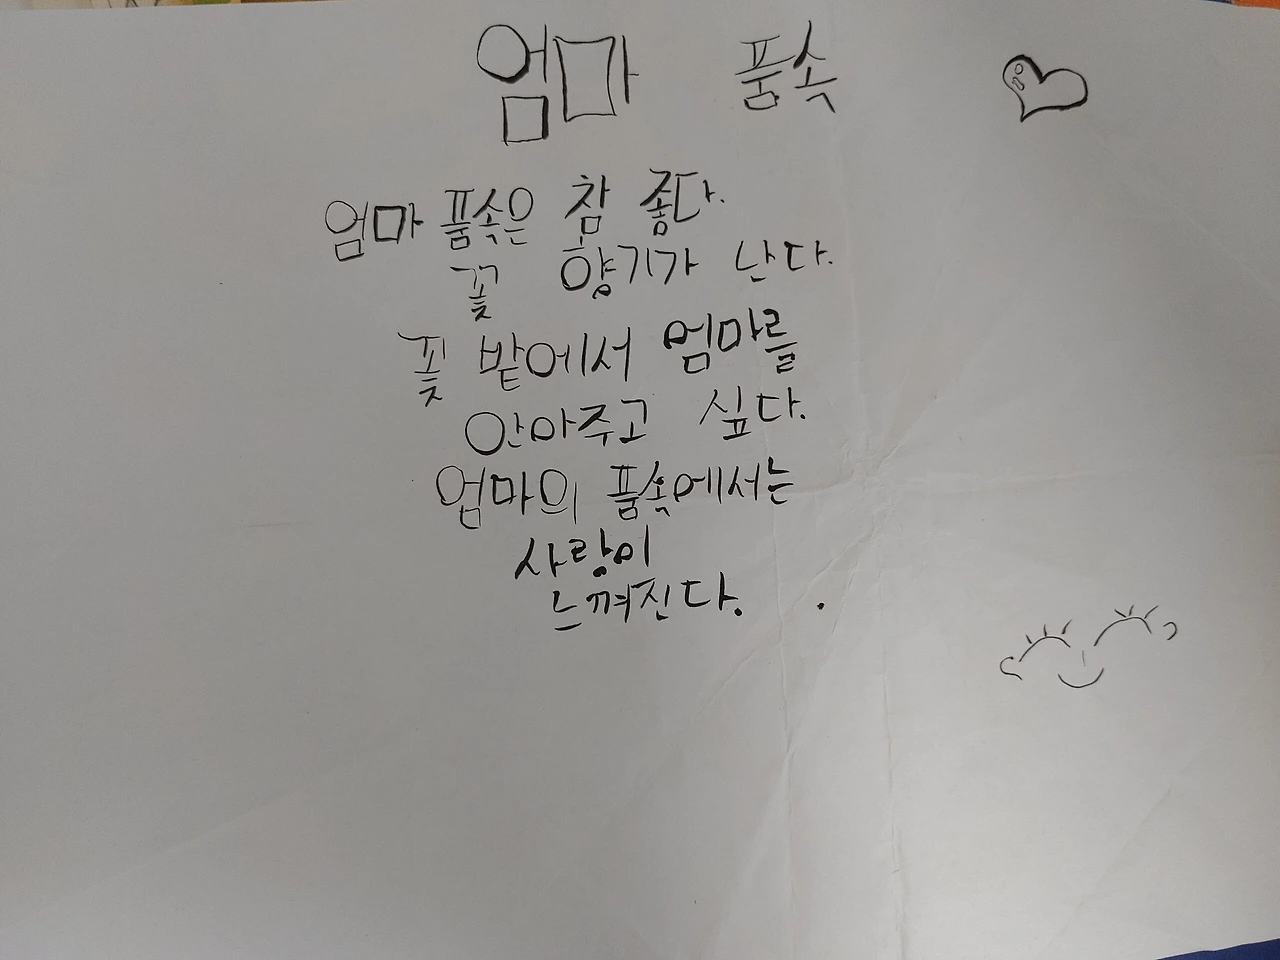 엄마 품속
엄마 품속은 참 좋다.
꽃 향기가 난다.
꽃 밭에서 엄마를
안아주고 싶다.
엄마의 품속에서는
사랑이
느껴진다.